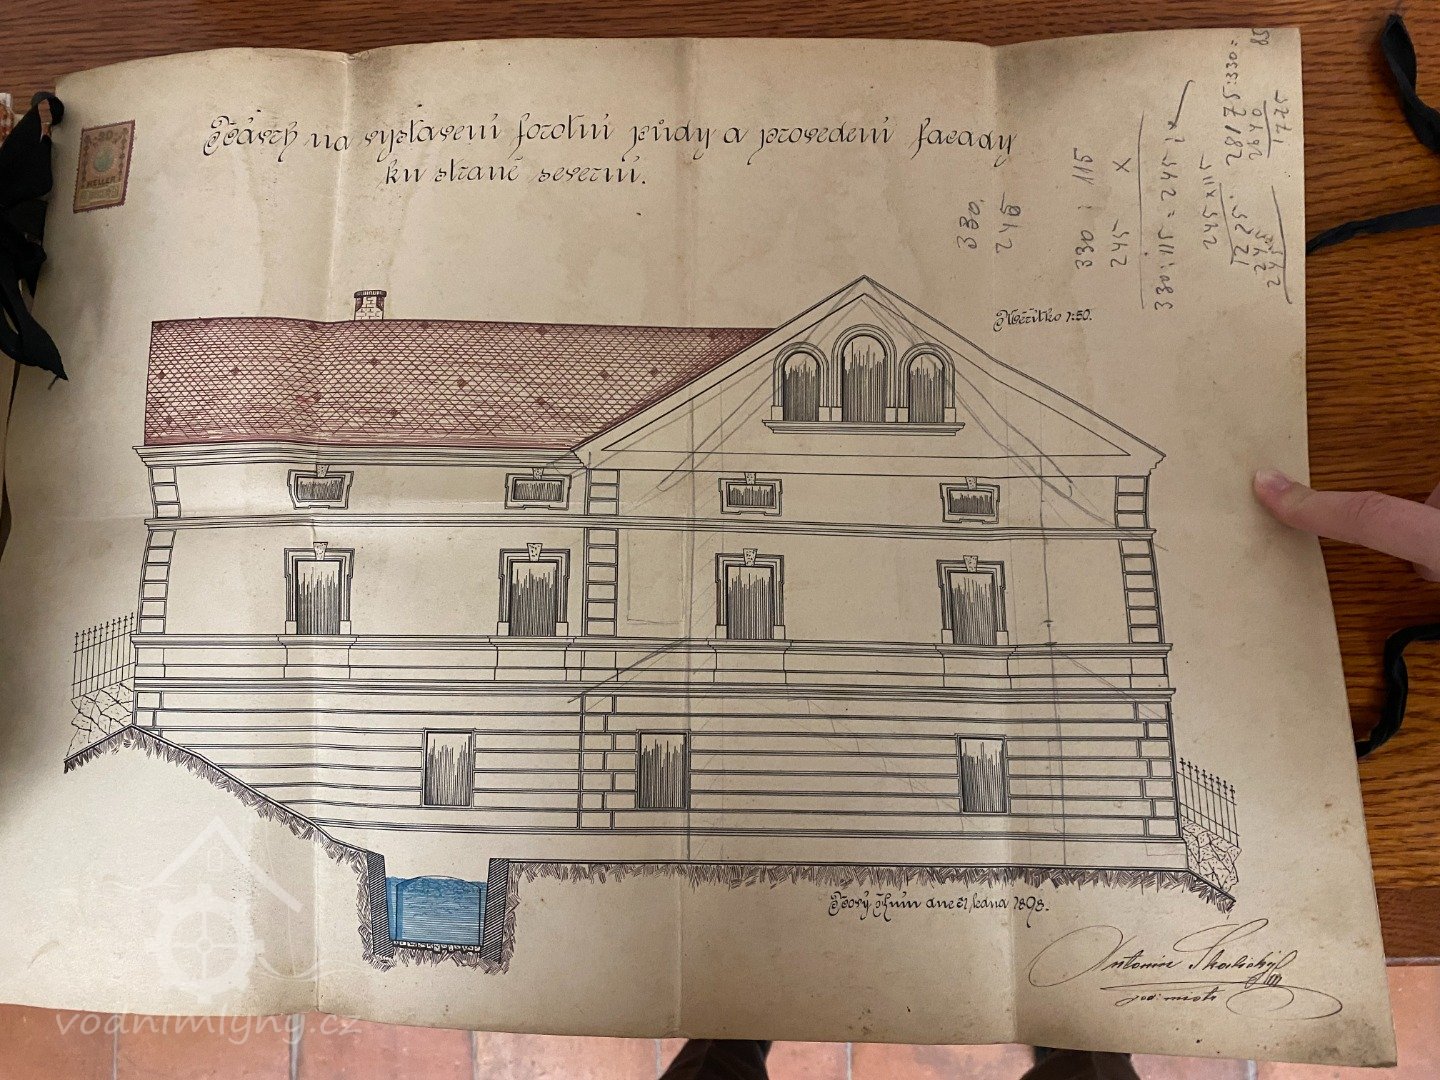 Návrh na vystavení forotní půdy a provedení facady
ku straně severní.
HELLER
Měřítko 1:50.
330
245
330 : 115
245 X
330:115 = 245:x
245 x 115
1225
245
245
28175:330=85
2640
1775
Nový Mlýn dne 31, ledna 1898.
Antonín Skalický
vodnimlyny.cz